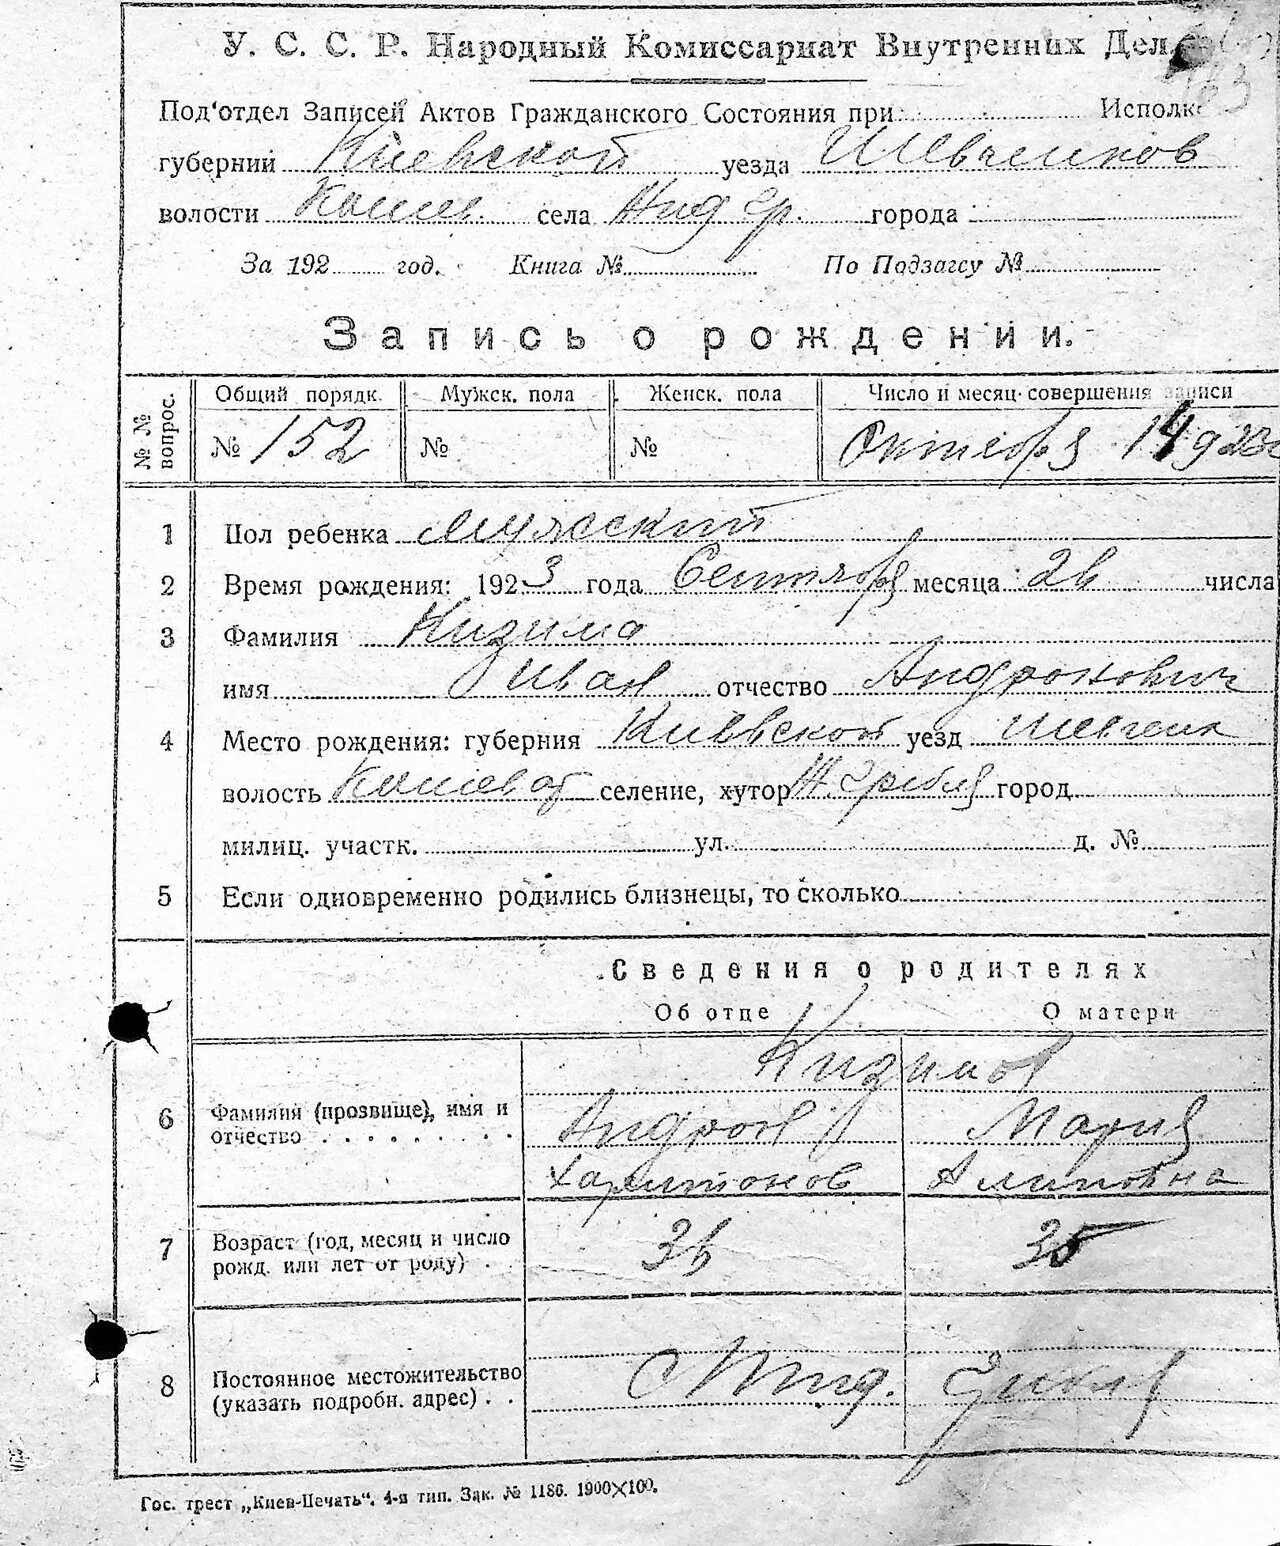 У. С. С. Р. Народный Комиссариат Внутренних Дел
Под'отдел Записей Актов Гражданского Состояния при Исполк
губерний Киевской уезда Шевченков
волости Кошев. села Пид гр. города
За 192 год. Книга № По Подзагсу №
Запись о рождении.
№ № вопрос. Общий порядк. Мужск. пола Женск. пола Число и месяц совершения записи
№ 152 № № Октября 14 923г
1 Пол ребенка Мужский
2 Время рождения: 1923 года Сентября месяца 26 числа
3 Фамилия Кизима
имя Иван отчество Андронович
4 Место рождения: губерния Киевской уезд Шевченк
волость Кошеват селение, хутор гребля город
милиц. участк. ул. д. №
5 Если одновременно родились близнецы, то сколько
Сведения о родителях
Об отце О матери
Кизимов
6 Фамилия (прозвище), имя и Андрон Мария
отчество . . . . . . . . . Харитонов
7 Возраст (год, месяц и число 36 35
рожд. или лет от роду) . .
8 Постоянное местожительство с Пид.
(указать подробн. адрес) . .
Гос. трест „Киев-Печать“. 4-я тип. Зак. № 1186. 1900×100.